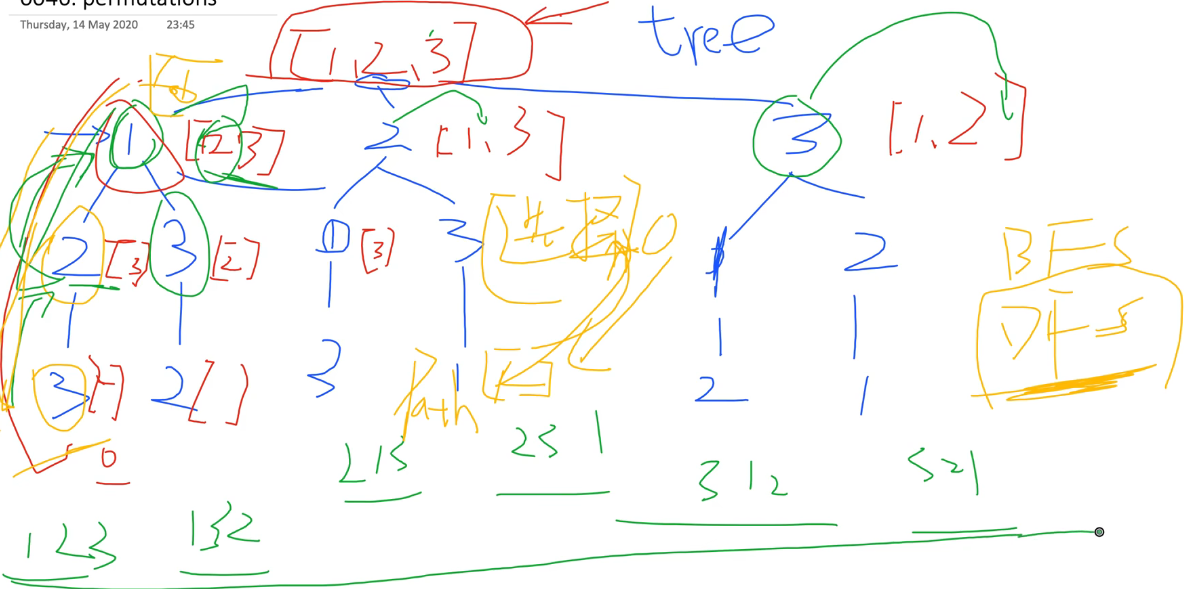 0046. permutations
Thursday, 14 May 2020 23:45
[1,2,3]
tree
1 [2 3]
2 [1,3]
3 [1,2]
2 [3] 3 [2]
1 [3] 3 [选择] 0
1 2
BFS
DFS
1 1
3 [] 2 []
3 1
path []
2 1
0
213
231
312
321
123
132